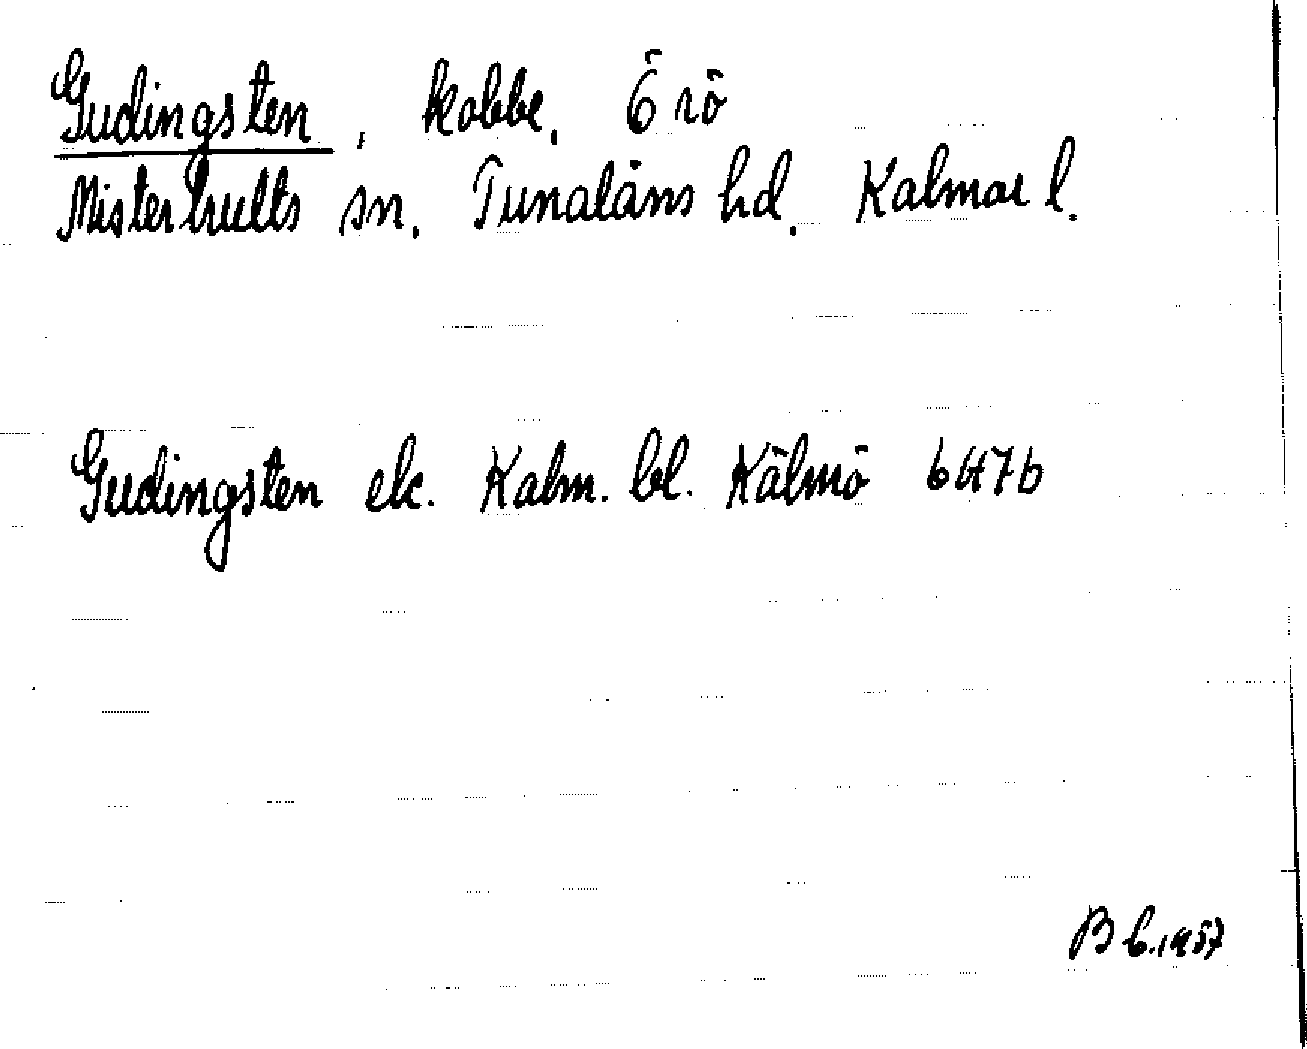 Gudingsten, kobbe, Örö
Misterhults sn. Tunaläns hd. Kalmar l.
Gudingsten ek. Kalm. bl. Kälmö 6H7b
B b.1957